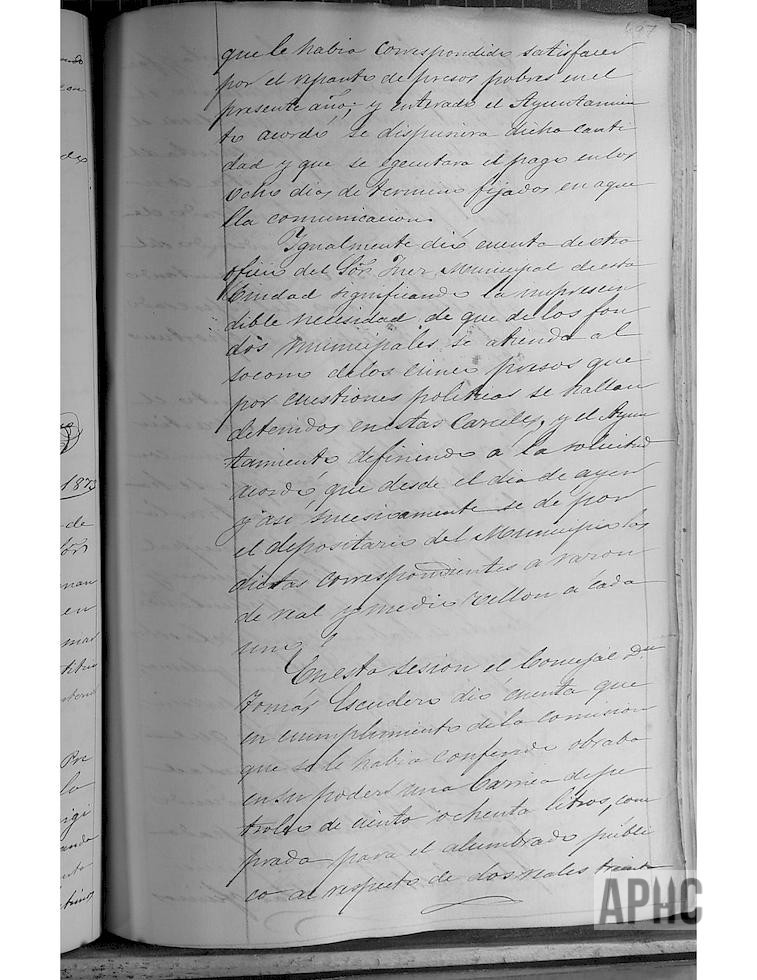 497
que le habia correspondido satisfacer
por el reparto de presos pobres en el
presente año; y enterado el Ayuntamien
to acordó se dispusiera dicha canti
dad y que se ejecutara el pago en los
ocho dias de termino fijados en aque
lla comunicacion.
Igualmente dió cuenta de otro
oficio del Sor. Juez Municipal de esta
Ciudad significando la imprescin
dible necesidad de que de los fon
dos municipales se atienda al
socorro de los cinco presos que
por cuestiones politicas se hallan
detenidos en estas Carceles, y el Ayun
tamiento definiendo a la solicitud
acordó, que desde el dia de ayer
y asi sucesivamente se de por
el depositario del Municipio las
dietas correspondientes a razon
de real y medio vellon a cada
uno
En esta sesion el Concejal Dn
Tomás Escudero dió cuenta que
en cumplimiento de la comision
que se le habia conferido obraba
en su poder una de pe
troleo de ciento ochenta litros, com
prada para el alumbrado públi
co al respecto de dos reales treinta
1873
de
Sor
en
Pn
la
APHC